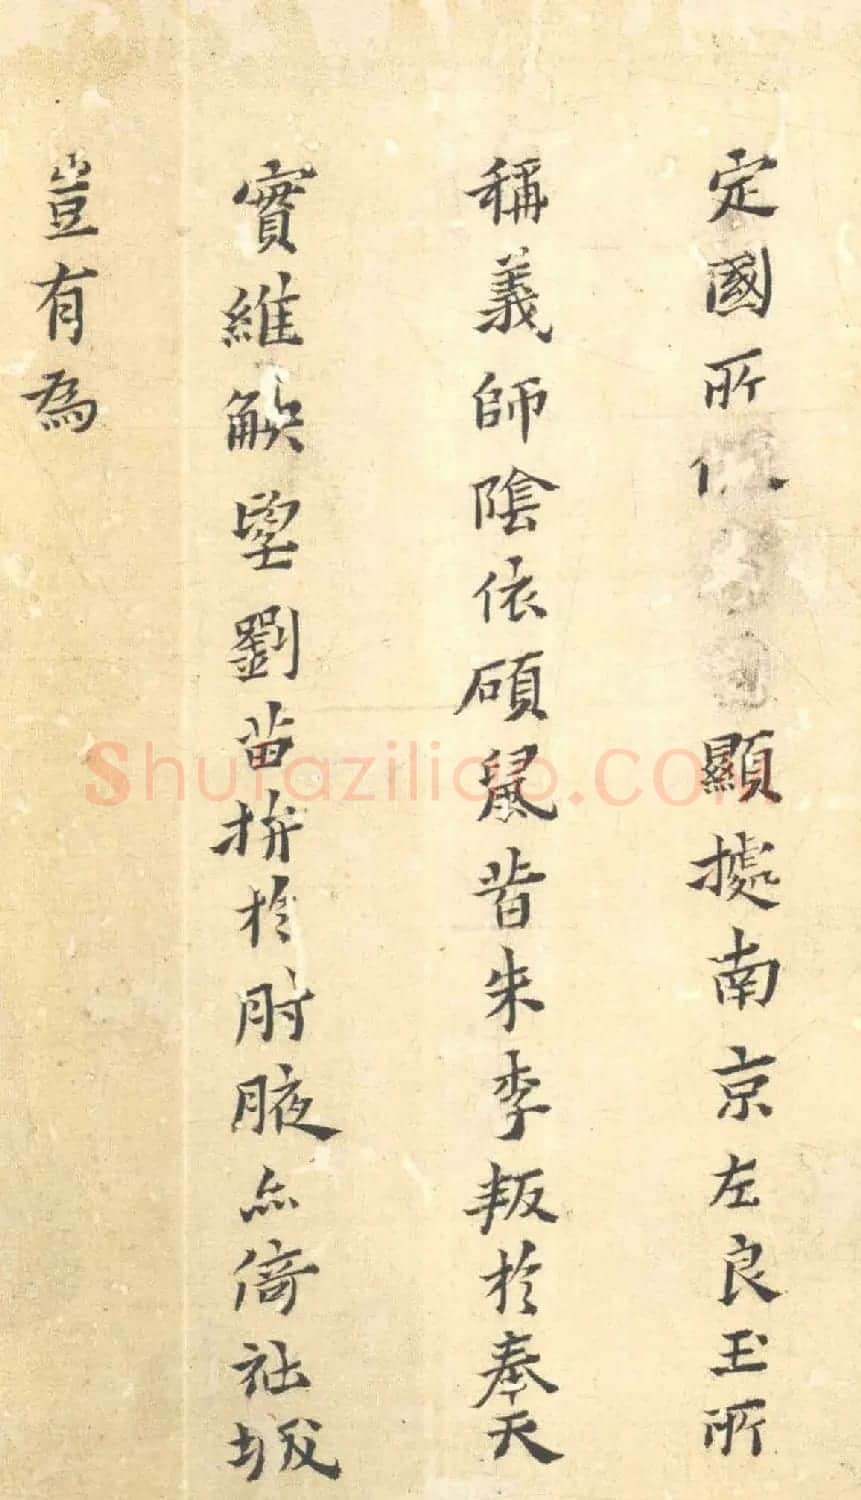 定國所顯㨿南京左良玉所
稱義師陰依碩鼠昔朱李叛於奉天
實維觖望劉苗拼於肘腋亦倚社城
豈有為
shufaziliao.com